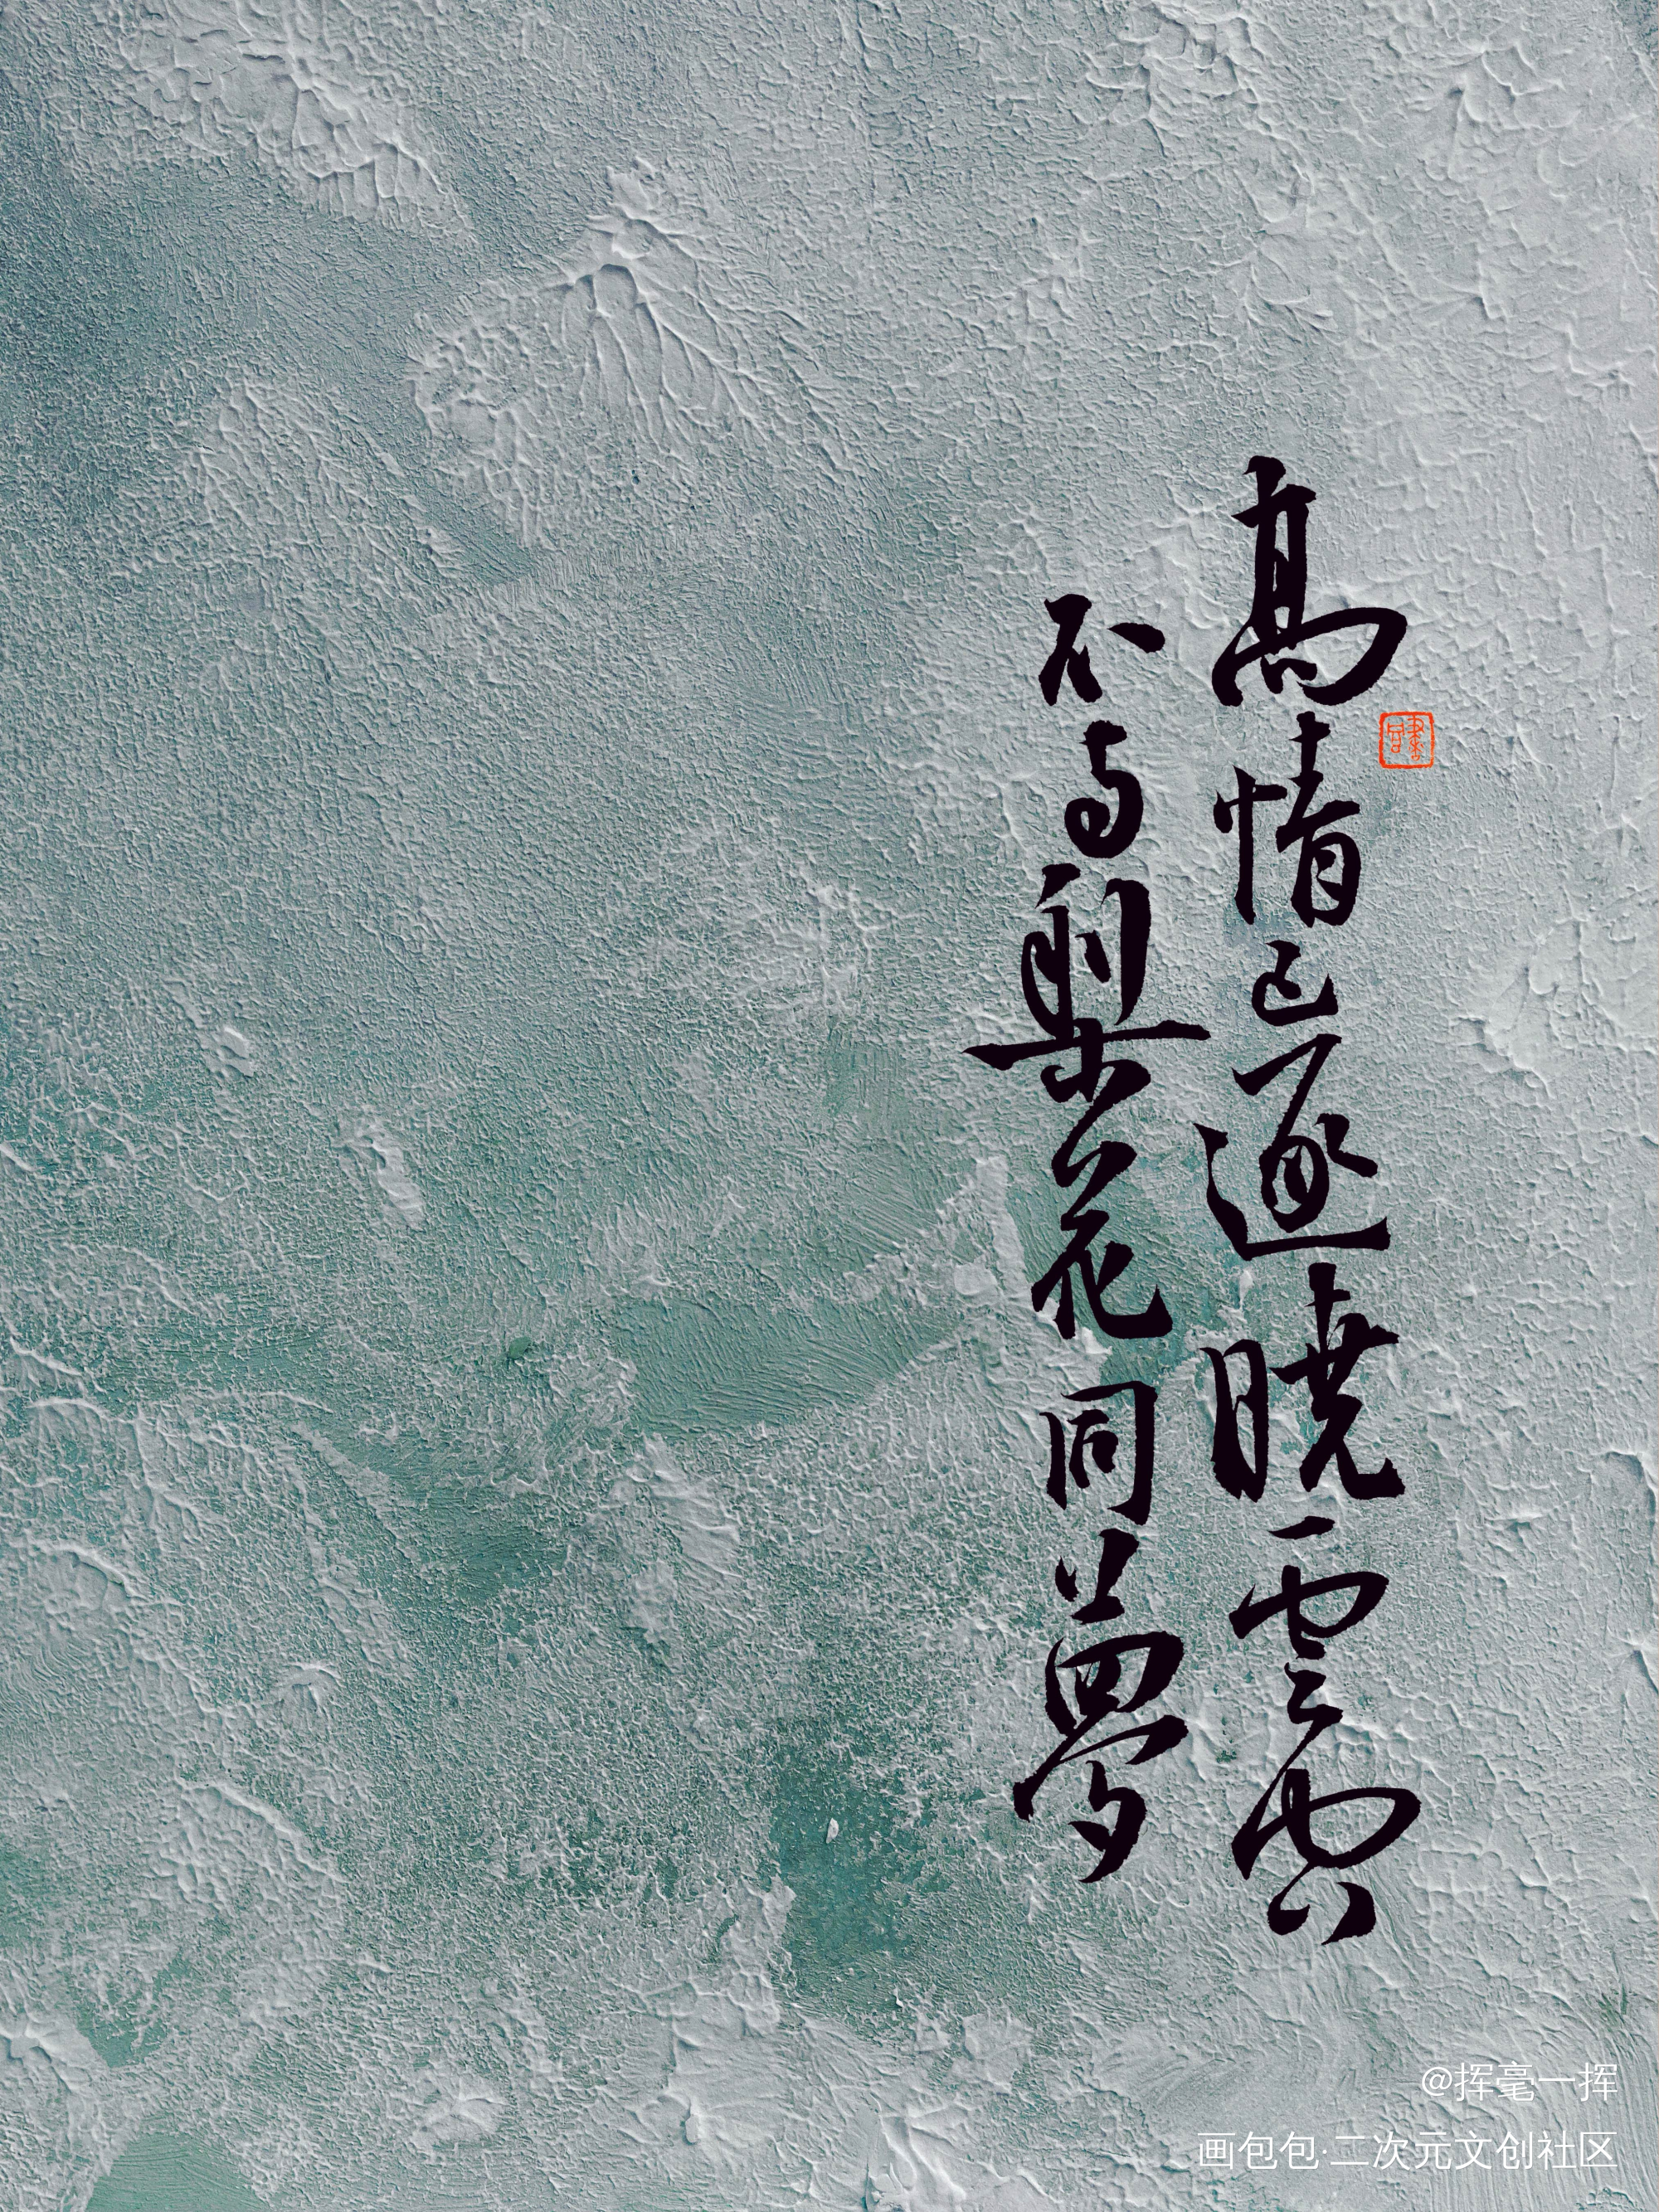 高情已逐曉雲空
不与梨花同夢
@挥毫一挥
画包包·二次元文创社区